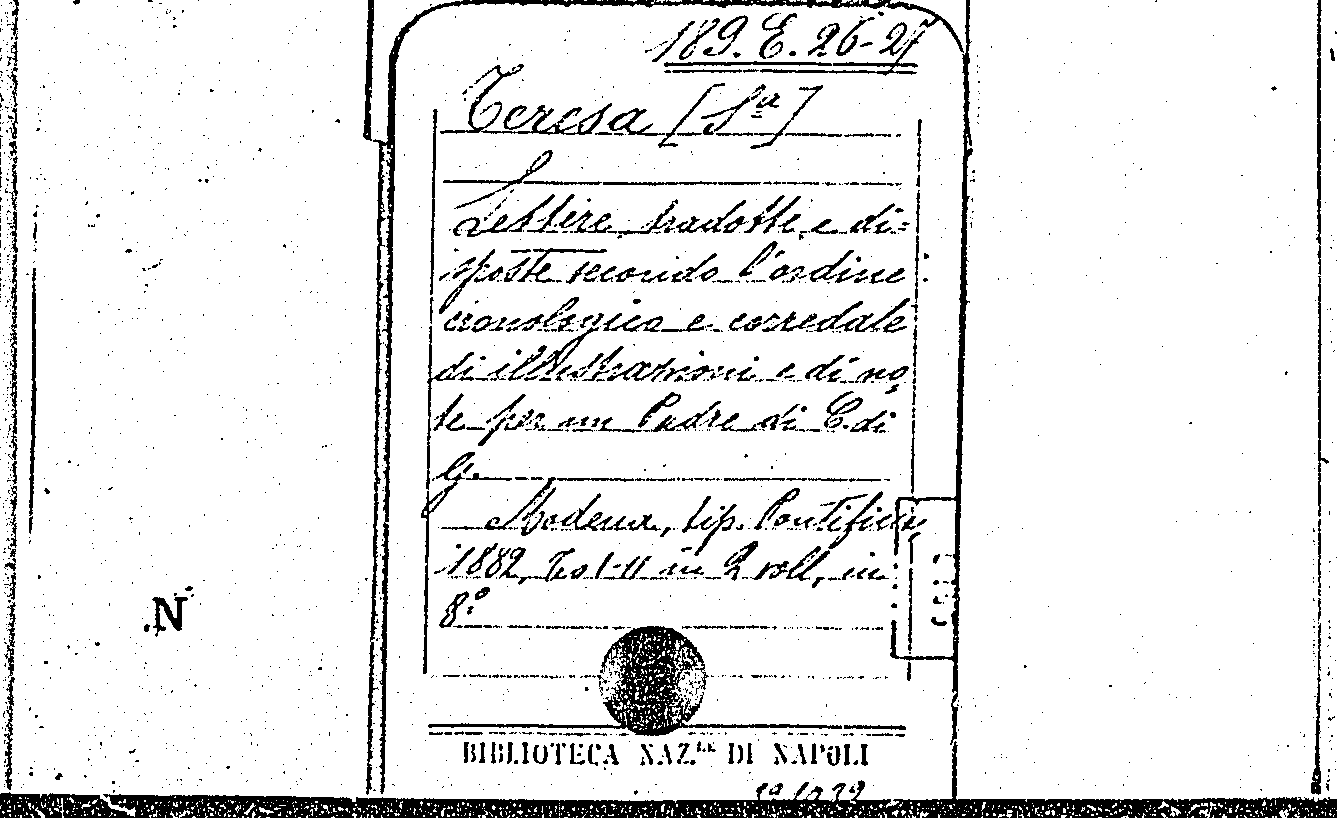 189. E. 26-27
Teresa [Sª]
Lettere tradotte e di=
sposte secondo l'ordine
cronologico e corredate
di illustrazioni e di no,
te per un Padre di C. di
G.
Modena, tip. Pontificia
1882, To I-II in 2 voll, in
8.º
N
BIBLIOTECA NAZ.LE DI NAPOLI